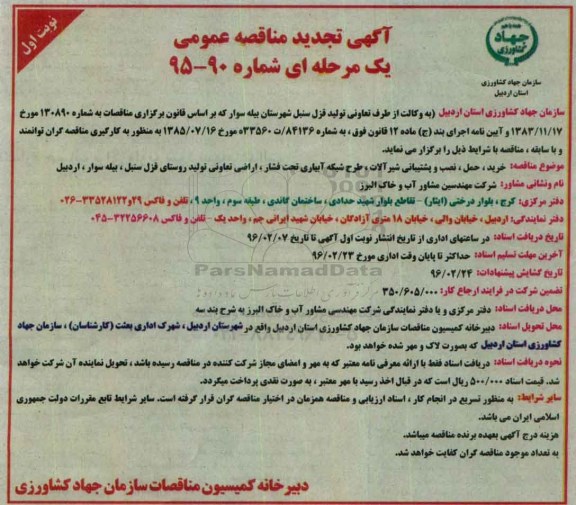 نوبت اول
آگهی تجدید مناقصه عمومی
یک مرحله ای شماره ۹۰-۹۵
جهاد کشاورزی
سازمان جهاد کشاورزی
استان اردبیل
سازمان جهاد کشاورزی استان اردبیل (به وکالت از طرف تعاونی تولید قزل سنبل شهرستان بیله سوار که بر اساس قانون برگزاری مناقصات به شماره ۱۳۰۸۹۰ مورخ
۱۳۸۳/۱۱/۱۷ و آیین نامه اجرای بند (ج) ماده ۱۲ قانون فوق ، به شماره ۸۴۱۳۶/ت ۳۳۵۶۰ه مورخ ۱۳۸۵/۰۷/۱۶ به منظور به کارگیری مناقصه گران توانمند
و با سابقه ، مناقصه با شرایط ذیل را برگزار می نماید.
موضوع مناقصه: خرید ، حمل ، نصب و پشتیبانی شیرآلات ، طرح شبکه آبیاری تحت فشار ، اراضی تعاونی تولید روستای قزل سنبل ، بیله سوار ، اردبیل
نام ونشانی مشاور: شرکت مهندسین مشاور آب و خاک البرز
دفتر مرکزی: کرج ، بلوار درختی (ایثار) - تقاطع بلوار شهید حدادی ، ساختمان گاندی ، طبقه سوم ، واحد ۹ ، تلفن و فاکس ۲۹و۳۳۵۲۸۱۲۲-۰۲۶
دفتر نمایندگی: اردبیل ، خیابان والی ، خیابان ۱۸ متری آزادگان ، خیابان شهید ایرانی جم، واحد یک - تلفن و فاکس ۳۲۲۵۶۶۰۸-۰۴۵
تاریخ دریافت اسناد: در ساعتهای اداری از تاریخ انتشار نوبت اول آگهی تا تاریخ ۹۶/۰۲/۰۷
آخرین مهلت تسلیم اسناد: حداکثر تا پایان وقت اداری مورخ ۹۶/۰۲/۲۳
تاریخ گشایش پیشنهادات: ۹۶/۰۲/۲۴
تضمین شرکت در فرایند ارجاع کار: ۳۵۰/۶۰۵/۰۰۰
محل دریافت اسناد: دفتر مرکزی و یا دفتر نمایندگی شرکت مهندسی مشاور آب و خاک البرز به شرح بند سه
محل تحویل اسناد: دبیرخانه کمیسیون مناقصات سازمان جهاد کشاورزی استان اردبیل واقع در شهرستان اردبیل ، شهرک اداری بعثت (کارشناسان) ، سازمان جهاد
کشاورزی استان اردبیل که بصورت لاک و مهر شده خواهد بود.
نحوه دریافت اسناد: دریافت اسناد فقط با ارائه معرفی نامه معتبر که به مهر و امضای مجاز شرکت کننده در مناقصه رسیده باشد ، تحویل نماینده آن شرکت خواهد
شد. قیمت اسناد ۵۰۰/۰۰۰ ریال است که در قبال اخذ رسید با مهر معتبر ، به صورت نقدی پرداخت میگردد.
سایر شرایط: به منظور تسریع در انجام کار ، اسناد ارزیابی و مناقصه همزمان در اختیار مناقصه گران قرار گرفته است. سایر شرایط تابع مقررات دولت جمهوری
اسلامی ایران می باشد.
هزینه درج آگهی بعهده برنده مناقصه میباشد.
به تعداد موجود مناقصه گران کفایت خواهد شد.
دبیرخانه کمیسیون مناقصات سازمان جهاد کشاورزی
ParsNamadData